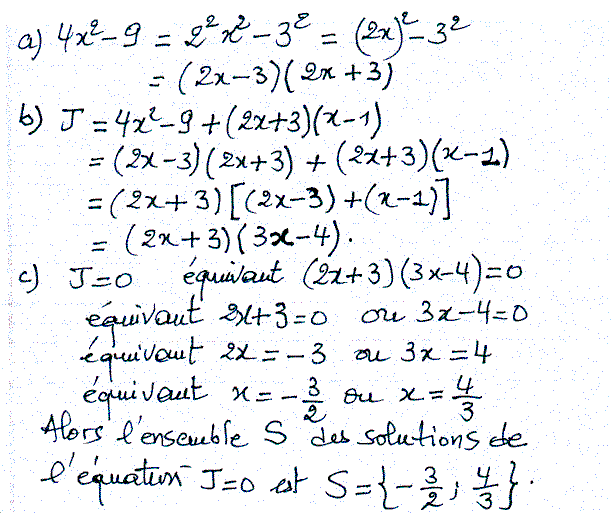 a) 4x²-9 = 2²x²-3² = (2x)²-3²
= (2x-3)(2x+3)
b) J = 4x²-9+(2x+3)(x-1)
= (2x-3)(2x+3) + (2x+3)(x-1)
= (2x+3)[(2x-3)+(x-1)]
= (2x+3)(3x-4).
c) J=0 équivaut (2x+3)(3x-4)=0
équivaut 2x+3=0 ou 3x-4=0
équivaut 2x = -3 ou 3x = 4
équivaut x = -3/2 ou x = 4/3
Alors l'ensemble S des solutions de
l'équation J=0 est S={-3/2; 4/3}.